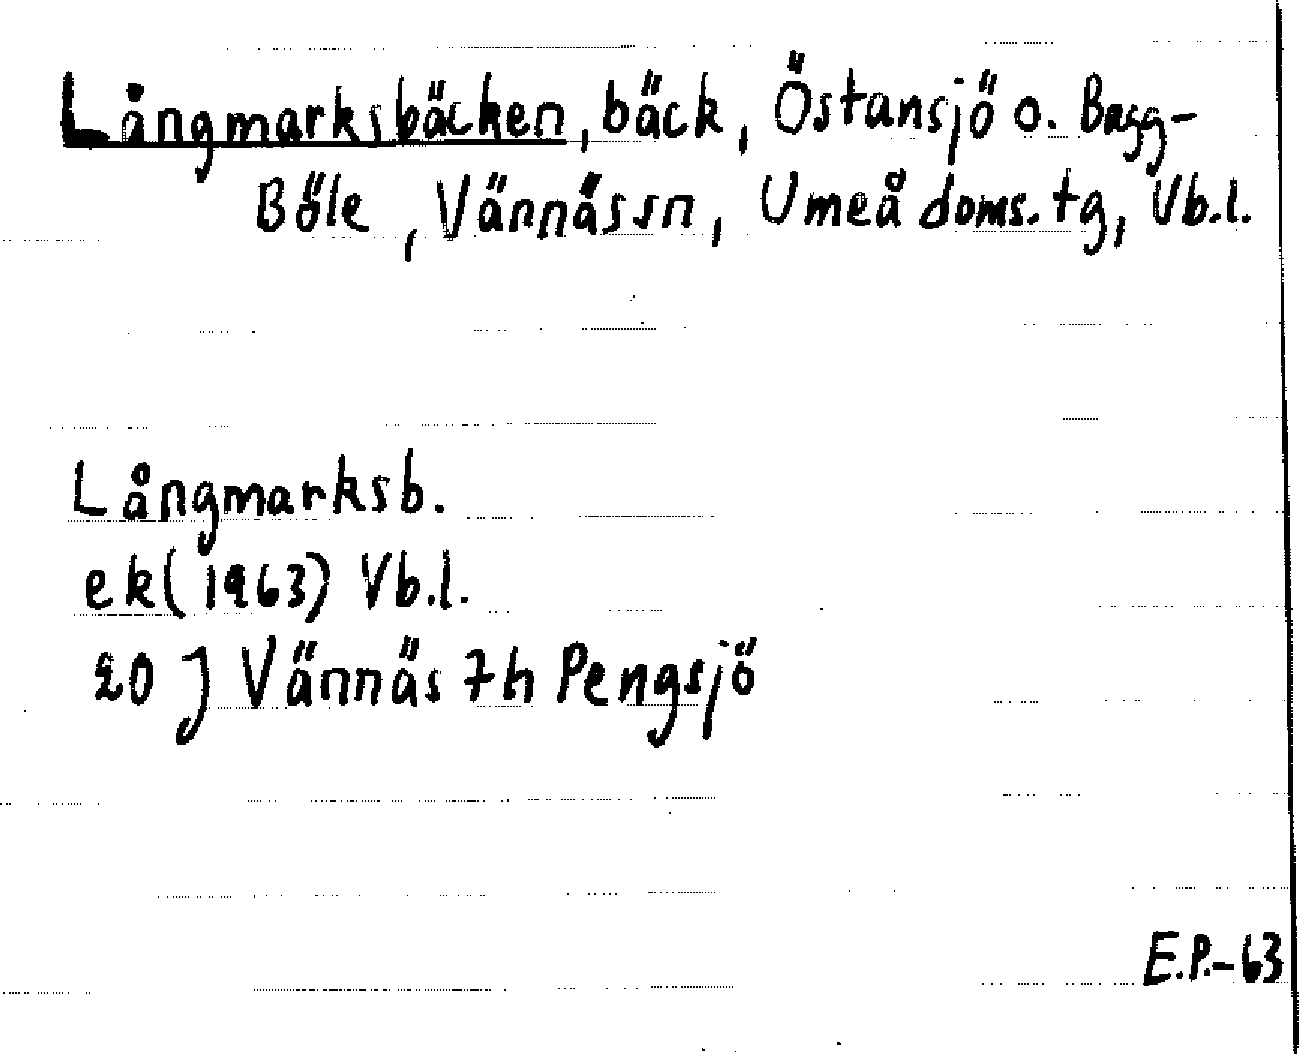 Långmarksbäcken, bäck, Östansjö o. Bagg-
Böle, Vännäs sn, Umeå doms. tg, Vb.l.
Långmarksb.
ek(1963) Vb.l.
20 J Vännäs 7h Pengsjö
E.P.-63